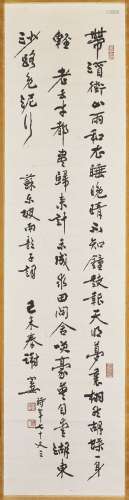 帶酒衝山雨和衣睡晚晴不知鐘鼓報天明夢裏栩然蝴蝶一身
輕 老去才都盡歸來計未成求田問舍笑豪英自愛湖東
沙路免泥行 蘇東坡南鄉子詞 己未春謝
時年七十又三